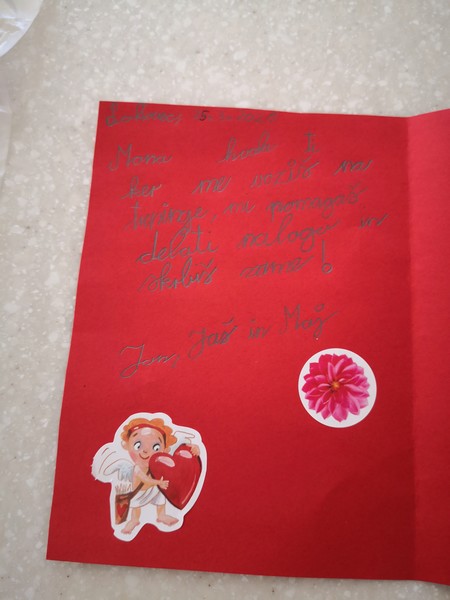 5.
Mama hvala ti
ker me voziš na
treninge, mi pomagaš
delati naloge in
skrbiš zame!
Jan, Jaš in